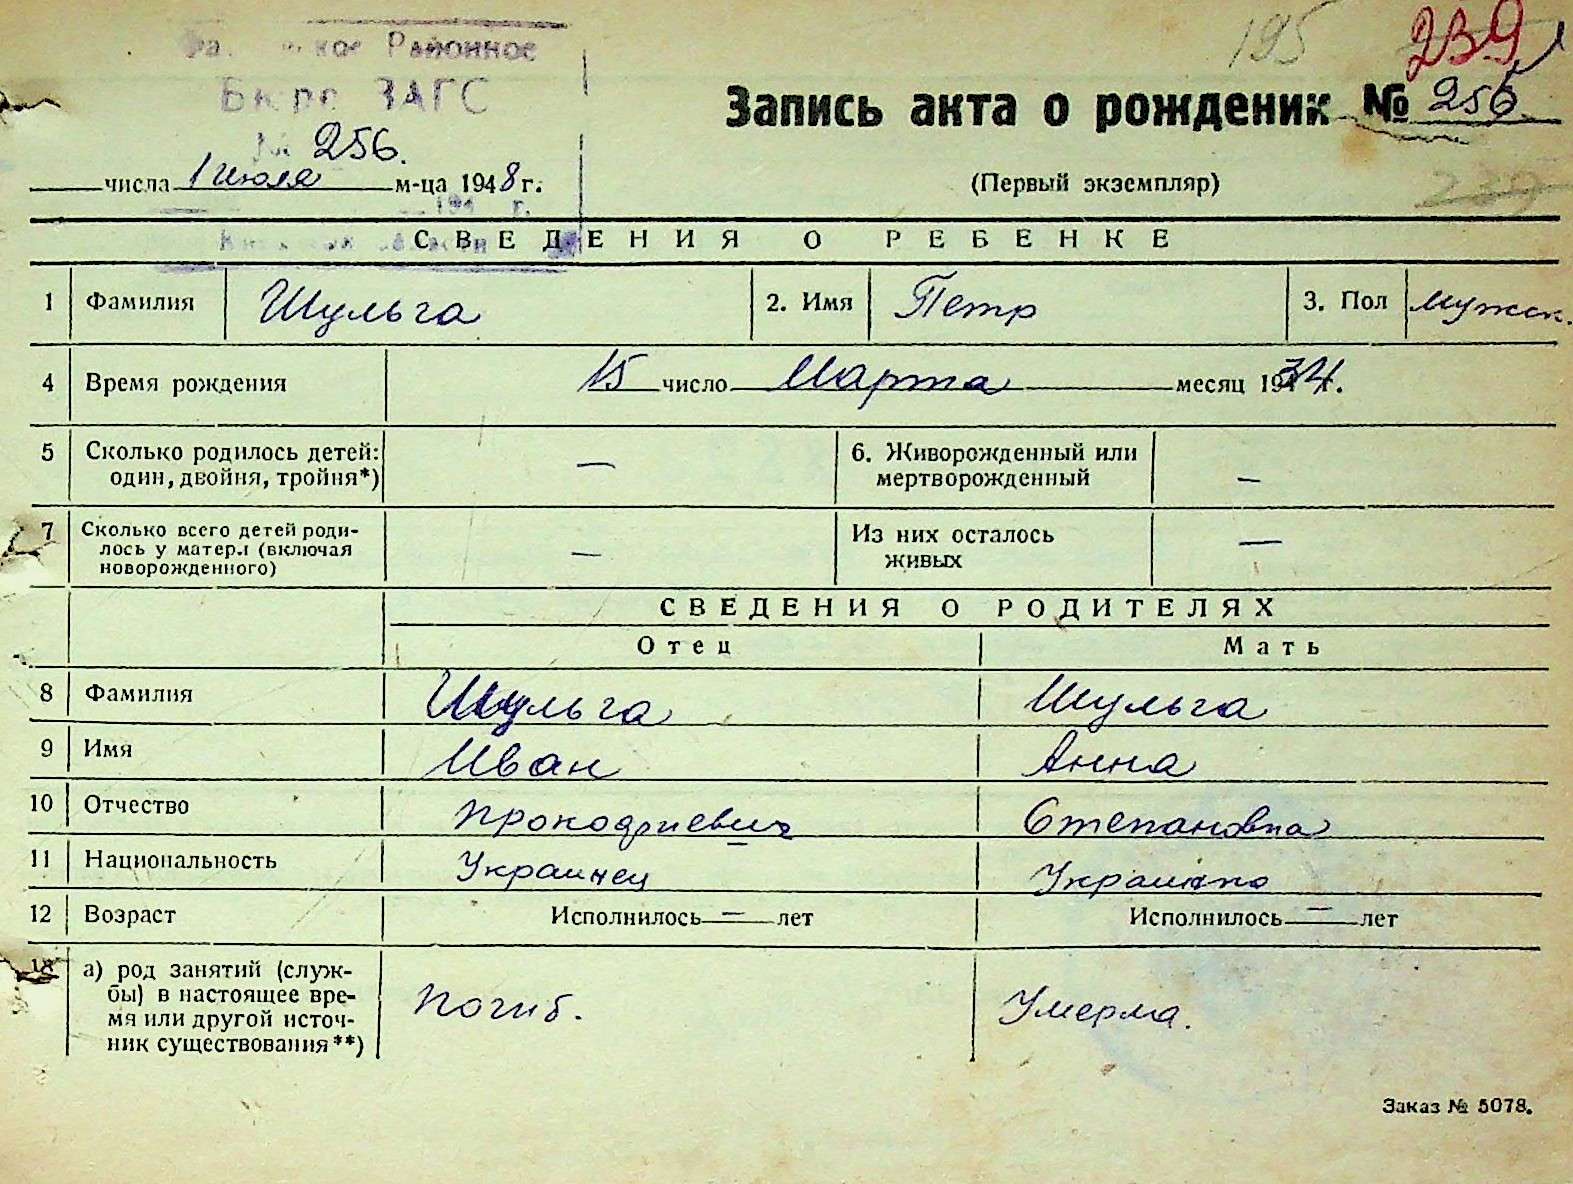 195 239
Районное
Бюро ЗАГС
Запись акта о рождении № 256
№ 256.
числа 1 июля м-ца 1948 г.
(Первый экземпляр)
239
194 г.
СВЕДЕНИЯ О РЕБЕНКЕ
1 Фамилия Шульга 2. Имя Петр 3. Пол мужск.
4 Время рождения 15 число Марта месяц 1934 г.
5 Сколько родилось детей: 6. Живорожденный или
один, двойня, тройня*) — мертворожденный —
7 Сколько всего детей роди- Из них осталось
лось у матери (включая — живых —
новорожденного)
СВЕДЕНИЯ О РОДИТЕЛЯХ
Отец Мать
8 Фамилия Шульга Шульга
9 Имя Иван Анна
10 Отчество Степановна
11 Национальность Украинец Украинка
12 Возраст Исполнилось — лет Исполнилось — лет
13 а) род занятий (служ-
бы) в настоящее вре- Погиб. Умерла.
мя или другой источ-
ник существования**)
Заказ № 5078.